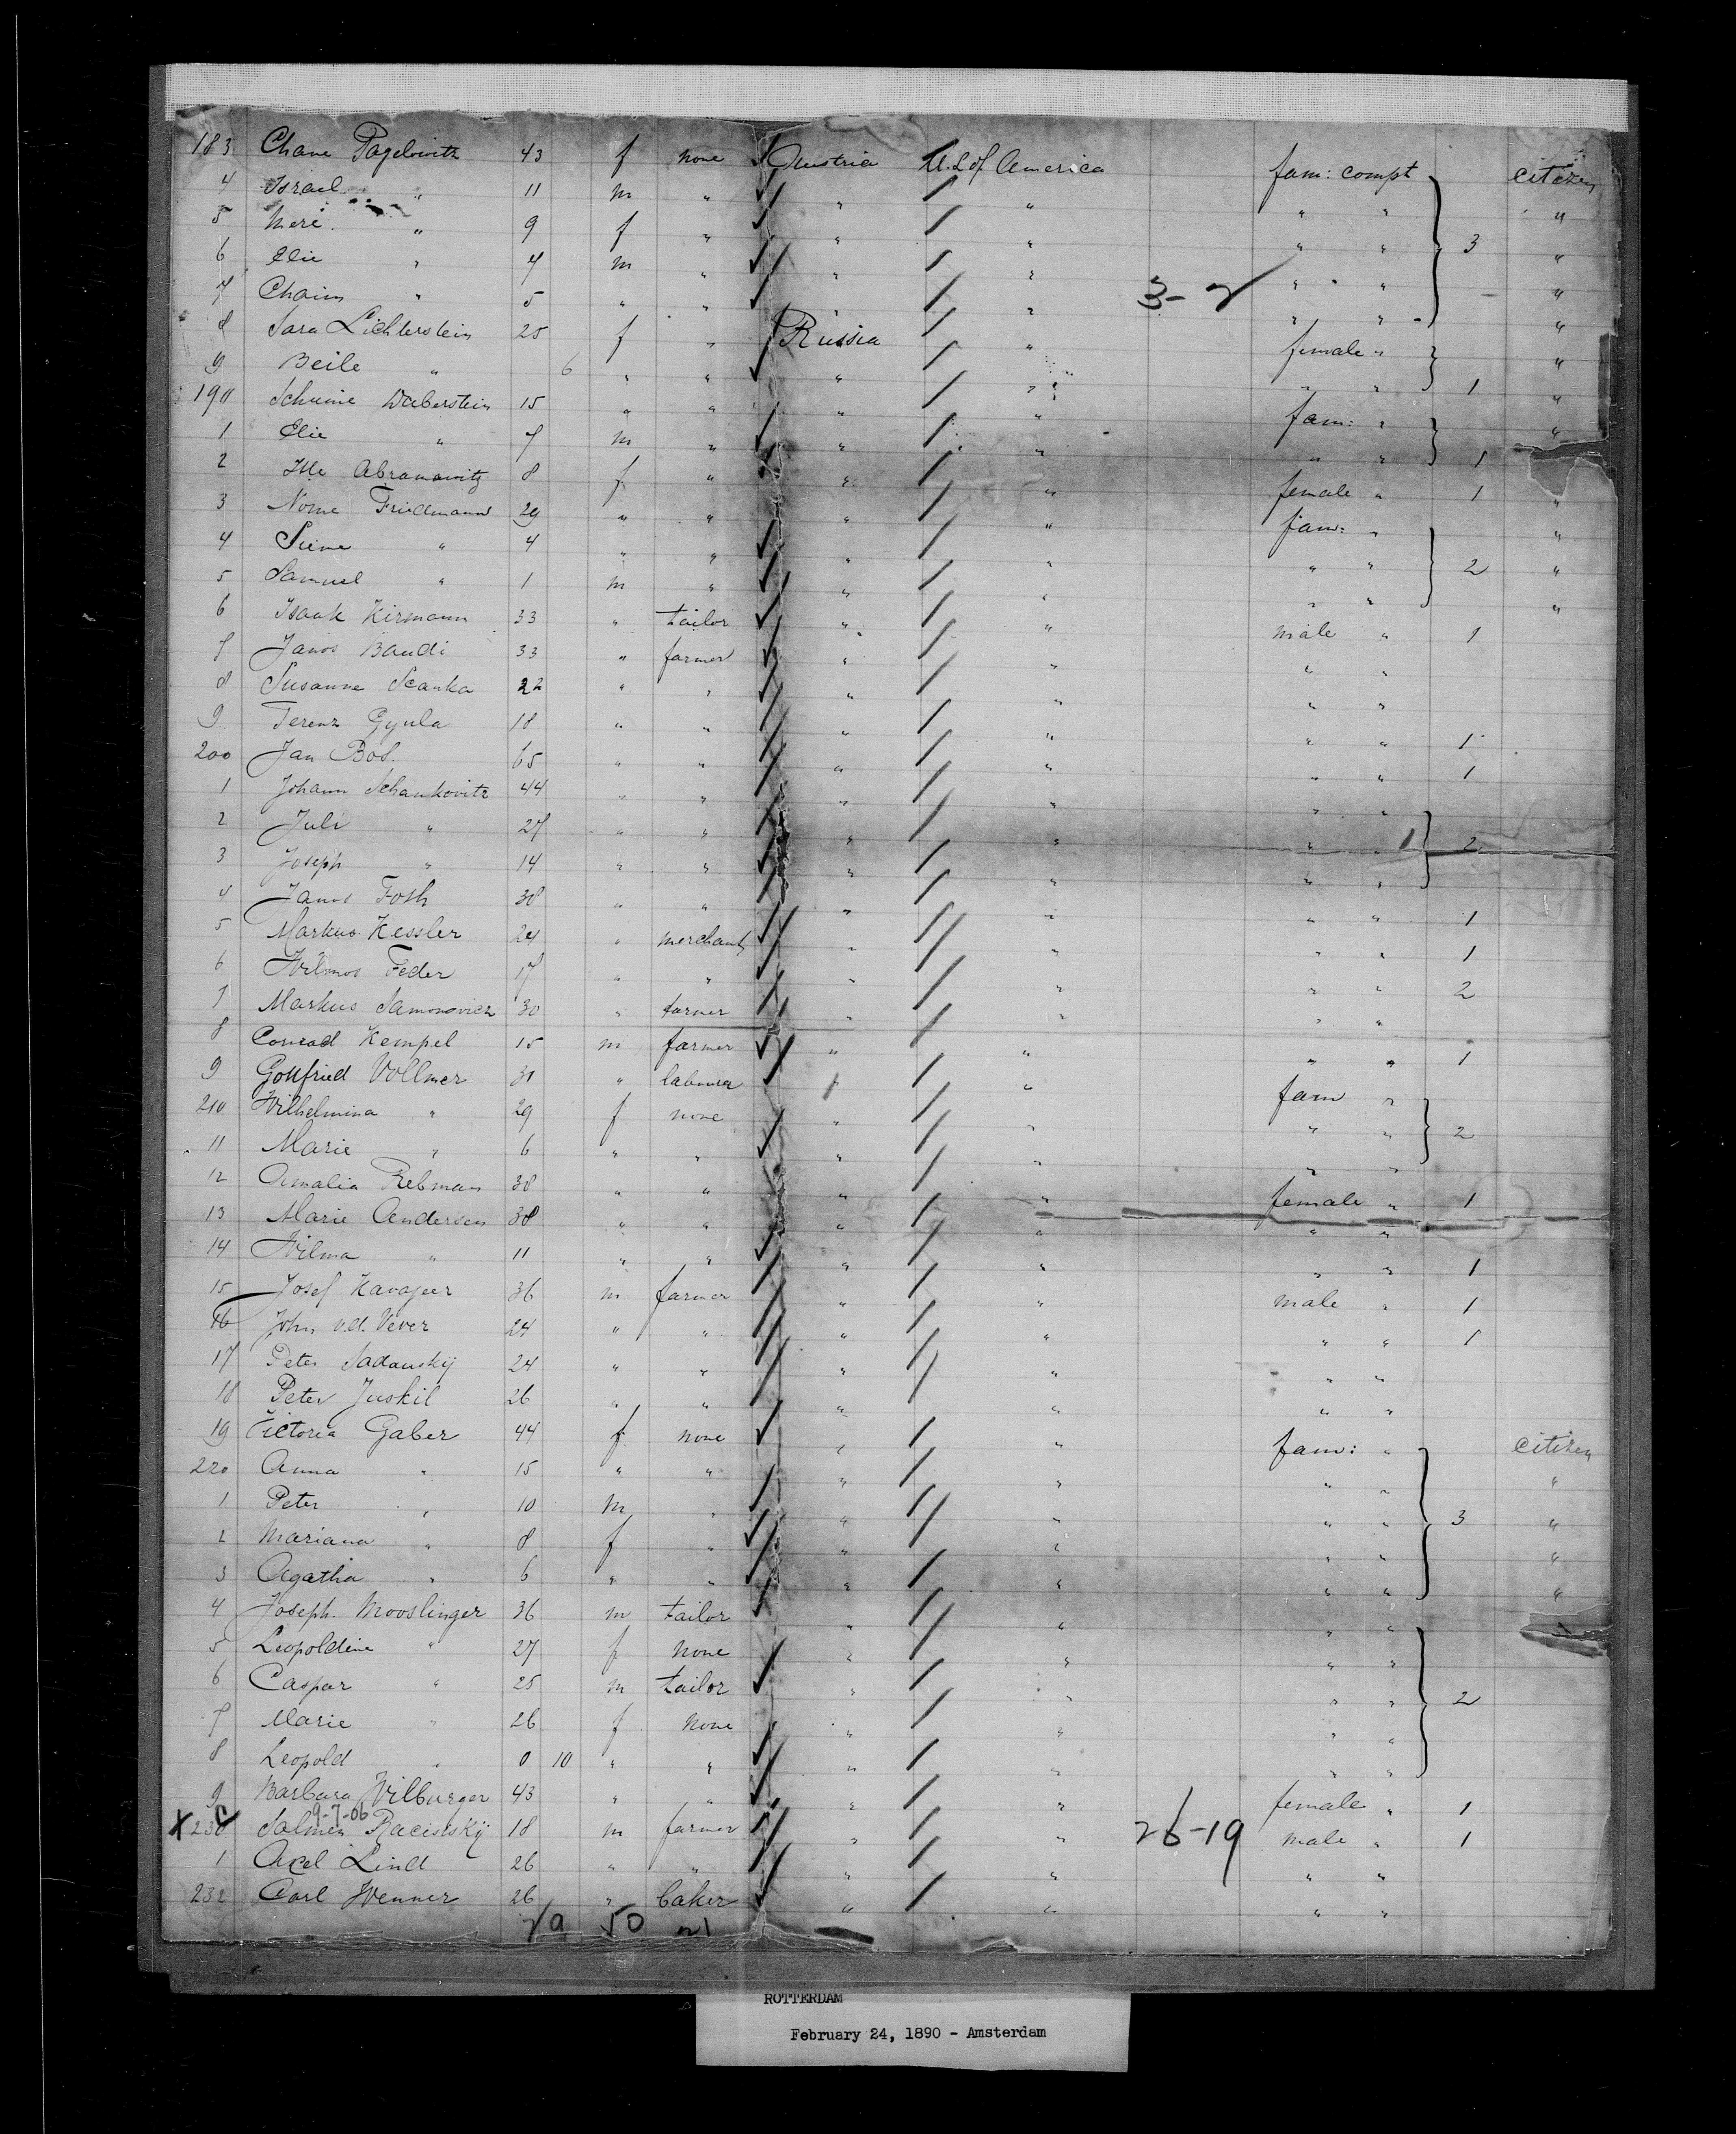 183 Chane Pagelowitz 43 f none Austria U.S of America fam: compt citizen
4 Israel " 11 m " " " " " "
5 Meri " 9 f " " " " " 3 "
6 Elie " 7 m " " " " " "
7 Chaim " 5 " " " " 3-2 " " "
8 Sara Lichterstein 25 f " Russia " female " "
9 Beile " 6 " " " " " " 1 "
190 Schunie Daberstein 15 " " " " fam: " "
1 Elie " 7 m " " " " " 1
2 Itte Abramowitz 8 f " " " female " 1 "
3 Nome Friedmann 29 " " " " fam: " "
4 Siene " 4 " " " " " " 2 "
5 Samuel " 1 m " " " " " "
6 Isaak Kirmann 33 " tailor " " male " 1
7 Janos Bandi 33 " farmer " " " "
8 Susanne Scanka 22 " " " " " "
9 Ferenz Gyula 18 " " " " " " 1
200 Jan Bos. 65 " " " " " " 1
1 Johann Schankovitz 44 " " " " " "
2 Juli " 27 " " " " " 1 2
3 Joseph " 14 " " " " " "
4 Janos Foth 38 " " " " " " 1
5 Markus Kessler 24 " merchant " " " " 1
6 Wilmos Feder 17 " " " " " " 2
7 Markus Samonovicz 30 " farmer " " " "
8 Conrad Kempel 15 m farmer " " " " 1
9 Gottfried Vollmer 31 " labourer " " fam "
210 Wilhelmina " 29 f none " " " " 2
11 Marie " 6 " " " " " "
12 Amalia Rebman 38 " " " " female " 1
13 Marie Andersen 38 " " " " " "
14 Wilma " 11 " " " " " " 1
15 Josef Kavajeer 36 m farmer " " male " 1
16 John v.d. Vever 24 " " " " " " 1
17 Peter Sadowskij 24 " " " " " "
18 Peter Juskil 26 " " " " " "
19 Victoria Gaber 44 f none " " fam: " citizen
220 Anna " 15 " " " " " " "
1 Peter " 10 m " " " " " 3 "
2 Mariana " 8 f " " " " " "
3 Agatha " 6 " " " " " " "
4 Joseph Mooslinger 36 m tailor " " " "
5 Leopoldine " 27 f none " " " "
6 Caspar " 25 m tailor " " " " 2
7 Marie " 26 f none " " " "
8 Leopold " 0 10 " " " " " "
9 Barbara Wilburger 43 " " " " female " 1
9-7-06
X 230 Salmen Racistskij 18 m farmer " " 26-19 male " 1
1 Axel Lind 26 " " " " " "
232 Carl Wenner 26 " baker " " " "
29 50 21
ROTTERDAM
February 24, 1890 - Amsterdam